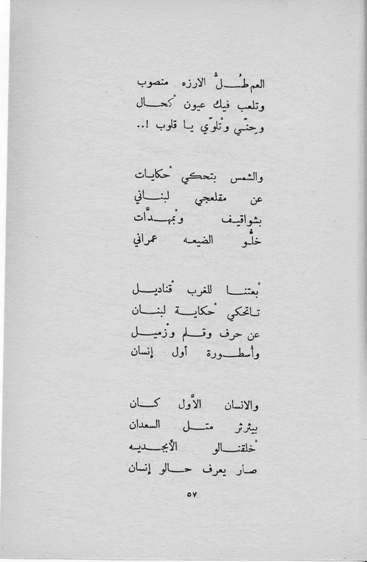 العم طــلّ الارزه منصوب
وتلعب فيك عيون كحــال
وحنّي وتلوّي يا قلوب !..
والشمس بتحكي حكايات
عن مقلعجي لبـنـاني
بشواقيـف ومهـدّات
خلّو الضيعـه عمراني
بعتنــا للغرب قناديــل
تاتحكي حكايــة لبنــان
عن حرف وقلـم وزميـل
وأسطـورة أول إنسان
والانسان الأول كــان
بيثرثر متــل السعدان
خلقنــالو الأبجـديـه
صار يعرف حـالو إنسان
٥٧